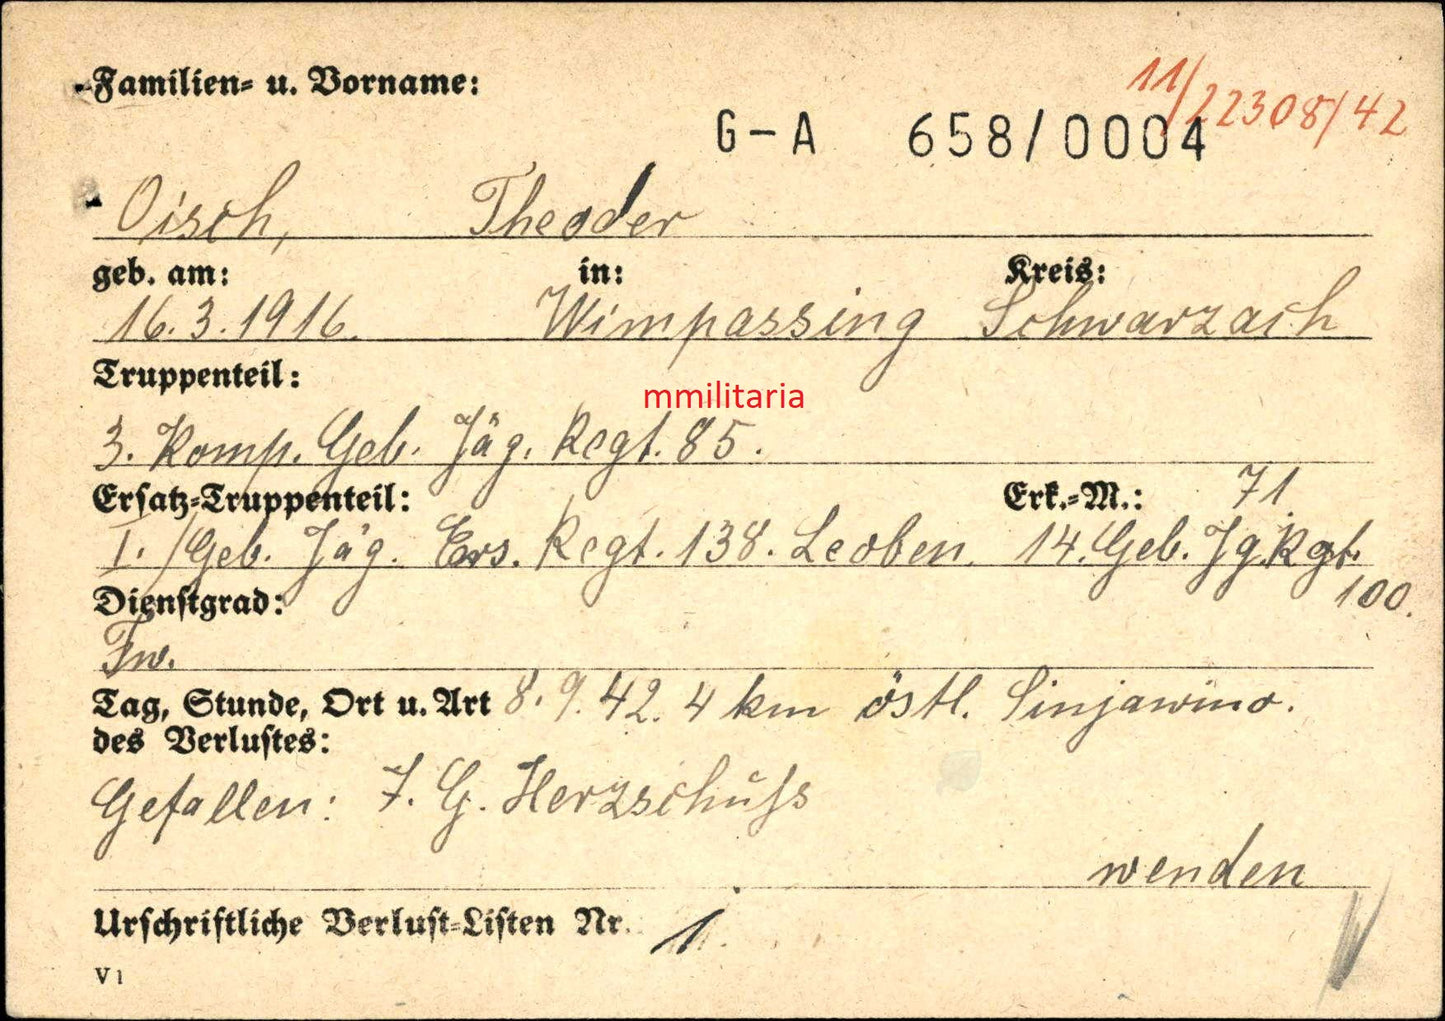 Familien- u. Vorname:
11/22308/42
G-A 658/0004
Oisch, Theoder
geb. am: in: Kreis:
16.3.1916. Wimpassing Schwarzach
Truppenteil:
mmilitaria
3. Komp. Geb. Jäg. Regt. 85.
Ersatz-Truppenteil: Erk.-M.: 71
I./Geb. Jäg. Ers. Regt. 138. Leoben. 14. Geb. Jg. Rgt.
100.
Dienstgrad:
Fw.
Tag, Stunde, Ort u. Art 8.9.42. 4 km östl. Sinjawino.
des Verlustes:
Gefallen: J. G. Herzschuß
wenden
Urschriftliche Verlust-Listen Nr. 1.
V 1